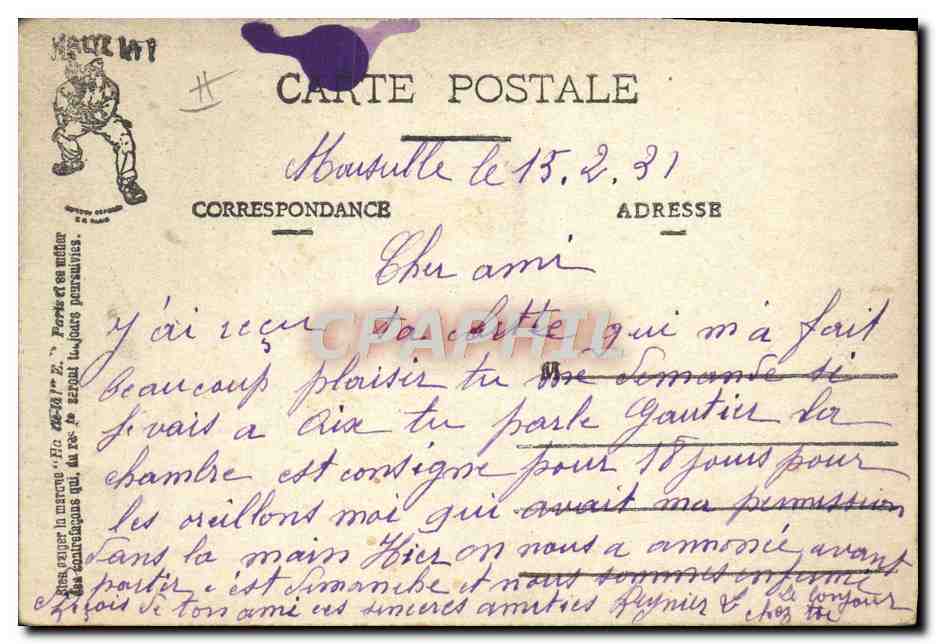 HALTE LA !
CARTE POSTALE
Marseille le 15.2.31
CORRESPONDANCE
ADRESSE
Cher ami
J'ai reçu ta cartte qui m'a fait
beaucoup plaisir tu me demande si
je vais a Aix tu parle Gautier la
chambre est consigne pour 18 jours pour
les oreillons moi qui avait ma permission
dans la main Hier on nous a annonié avant
partir c'est dimanche et nous sommes enfermé
reçois de ton ami ces sinceres amitiés Reynier L
Le bonjour
chez toi
CPAPHIL
Bien exiger la marque "Ha
Paris et sa métier
les contrefaçons qui, du reste seront toujours poursuivies.